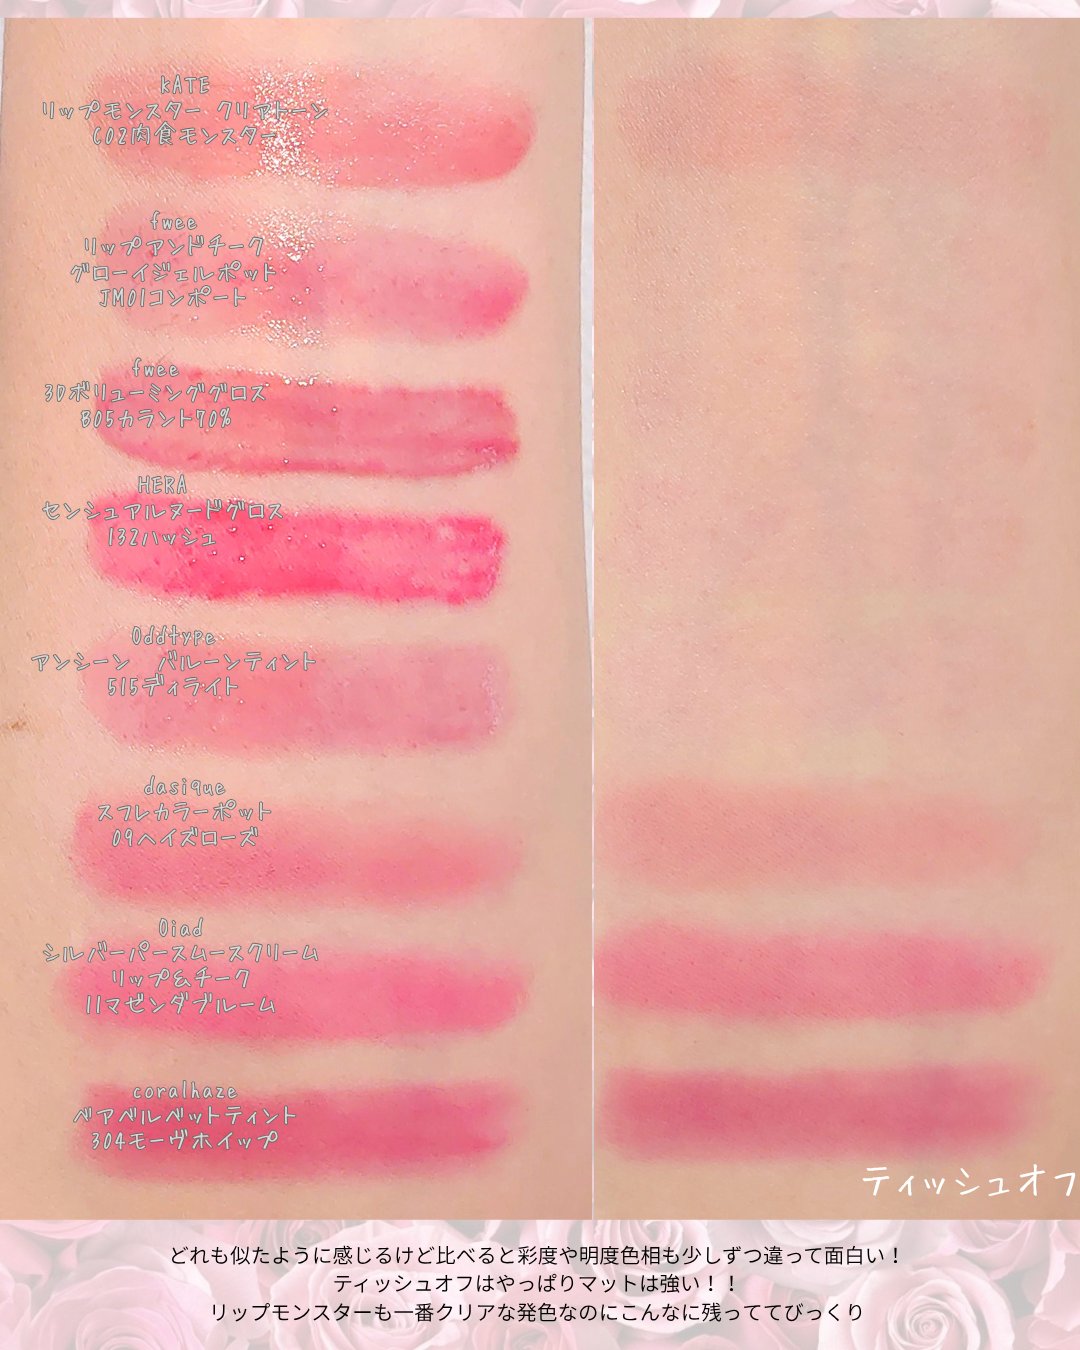 KATE
リップモンスター クリアトーン
C02肉食モンスター
fwee
リップアンドチーク
グローイジェルポッド
JM01コンポート
fwee
3Dボリューミンググロス
B05カラント70%
HERA
センシュアルヌードグロス
132ハッシュ
Oddtype
アンシーン バルーンティント
515ディライト
dasique
スフレカラーポット
09ヘイズローズ
Oiad
シルバーパースムースクリーム
リップ&チーク
11マゼンダブルーム
coralhaze
ベアベルベットティント
304モーヴホイップ
ティッシュオフ
どれも似たように感じるけど比べると彩度や明度色相も少しずつ違って面白い！
ティッシュオフはやっぱりマットは強い！！
リップモンスターも一番クリアな発色なのにこんなに残っててびっくり